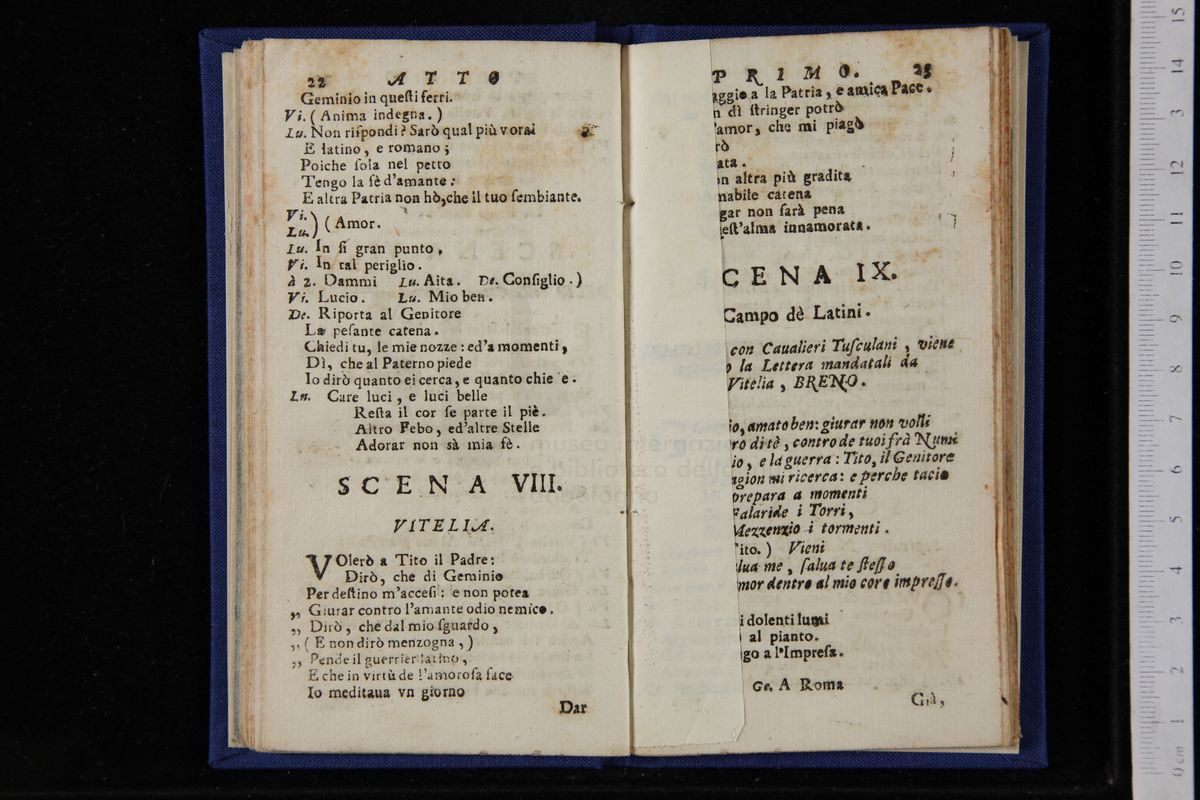 22 ATTO
Geminio in queſti ferri.
Vi. ( Anima indegna. )
Lu. Non riſpondi? Sarò qual più vorai
E latino, e romano;
Poiche ſola nel petto
Tengo la fè d'amante:
E altra Patria non hò, che il tuo ſembiante.
Vi.
Lu. ) ( Amor.
Lu. In ſi gran punto,
Vi. In tal periglio.
à 2. Dammi Lu. Aita. De. Conſiglio. )
Vi. Lucio. Lu. Mio ben.
De. Riporta al Genitore
La peſante catena.
Chiedi tu, le mie nozze: ed'a momenti,
Dì, che al Paterno piede
Io dirò quanto ei cerca, e quanto chie e.
Ln. Care luci, e luci belle
Reſta il cor ſe parte il piè.
Altro Febo, ed'altre Stelle
Adorar non sà mia fè.
SCENA VIII.
VITELIA.
VOlerò a Tito il Padre:
Dirò, che di Geminio
Per deſtino m'acceſi: e non potea
„ Giurar contro l'amante odio nemico.
„ Dirò, che dal mio ſguardo,
„ ( E non dirò menzogna, )
„ Pende il guerrier latino,
E che in virtù de l'amoroſa face
Io meditaua vn giorno
Dar
PRIMO. 25
aggio a la Patria, e amica Pace.
n dì ſtringer potrò
'amor, che mi piagò
rò
ata.
on altra più gradita
mabile catena
gar non ſarà pena
eſt'alma innamorata.
CENA IX.
Campo dè Latini.
con Caualieri Tuſculani, viene
o la Lettera mandatali da
Vitelia, BRENO.
io, amato ben: giurar non volli
ro di tè, contro de tuoi frà Numi
io, e la guerra: Tito, il Genitore
agion mi ricerca: e perche tacio
prepara a momenti
Falaride i Torri,
Mezzenzio i tormenti.
Tito. ) Vieni
lua me, ſalua te ſteſſo
mor dentro al mio core impreſſo.
i dolenti lumi
al pianto.
go a l'Impreſa.
Ge. A Roma
Già,
museo internazio
e biblioteca della